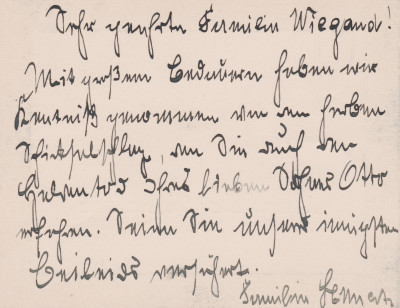 Sehr geehrte Familie Wiegand!
Mit großem Bedauern haben wir
Kentniß genommen von dem herben
Schicksalschlag, den Sie durch den
Heldentod Ihres lieben Sohnes Otto
erfuhren. Seien Sie unsers innigsten
Beileids versichert.
Familie